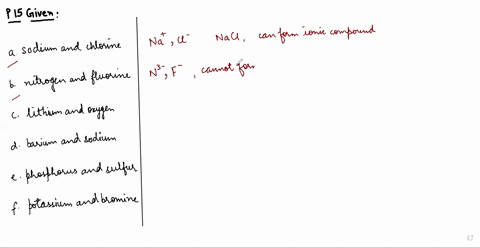 P15 Given:
a. sodium and chlorine
Na⁺, Cl⁻ NaCl, can form ionic compound
b. nitrogen and fluorine
N³⁻, F⁻, cannot for
c. lithium and oxygen
d. barium and sodium
e. phosphorus and sulfur
f. potassium and bromine